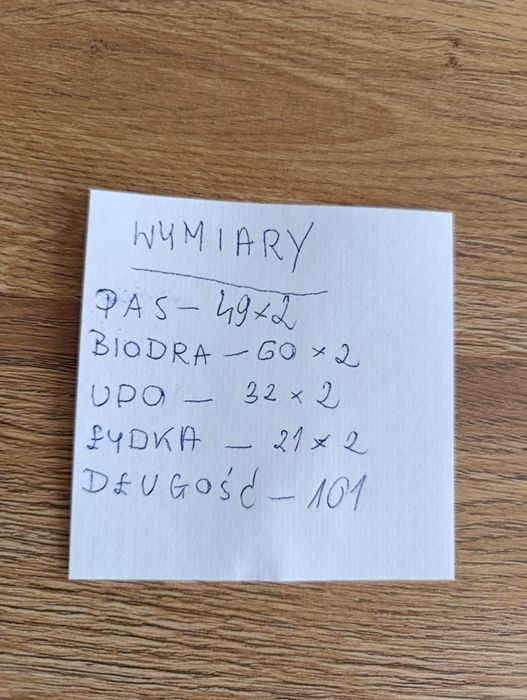 WYMIARY
PAS - 49 x 2
BIODRA - 60 x 2
UDO - 32 x 2
ŁYDKA - 21 x 2
DŁUGOŚĆ - 101